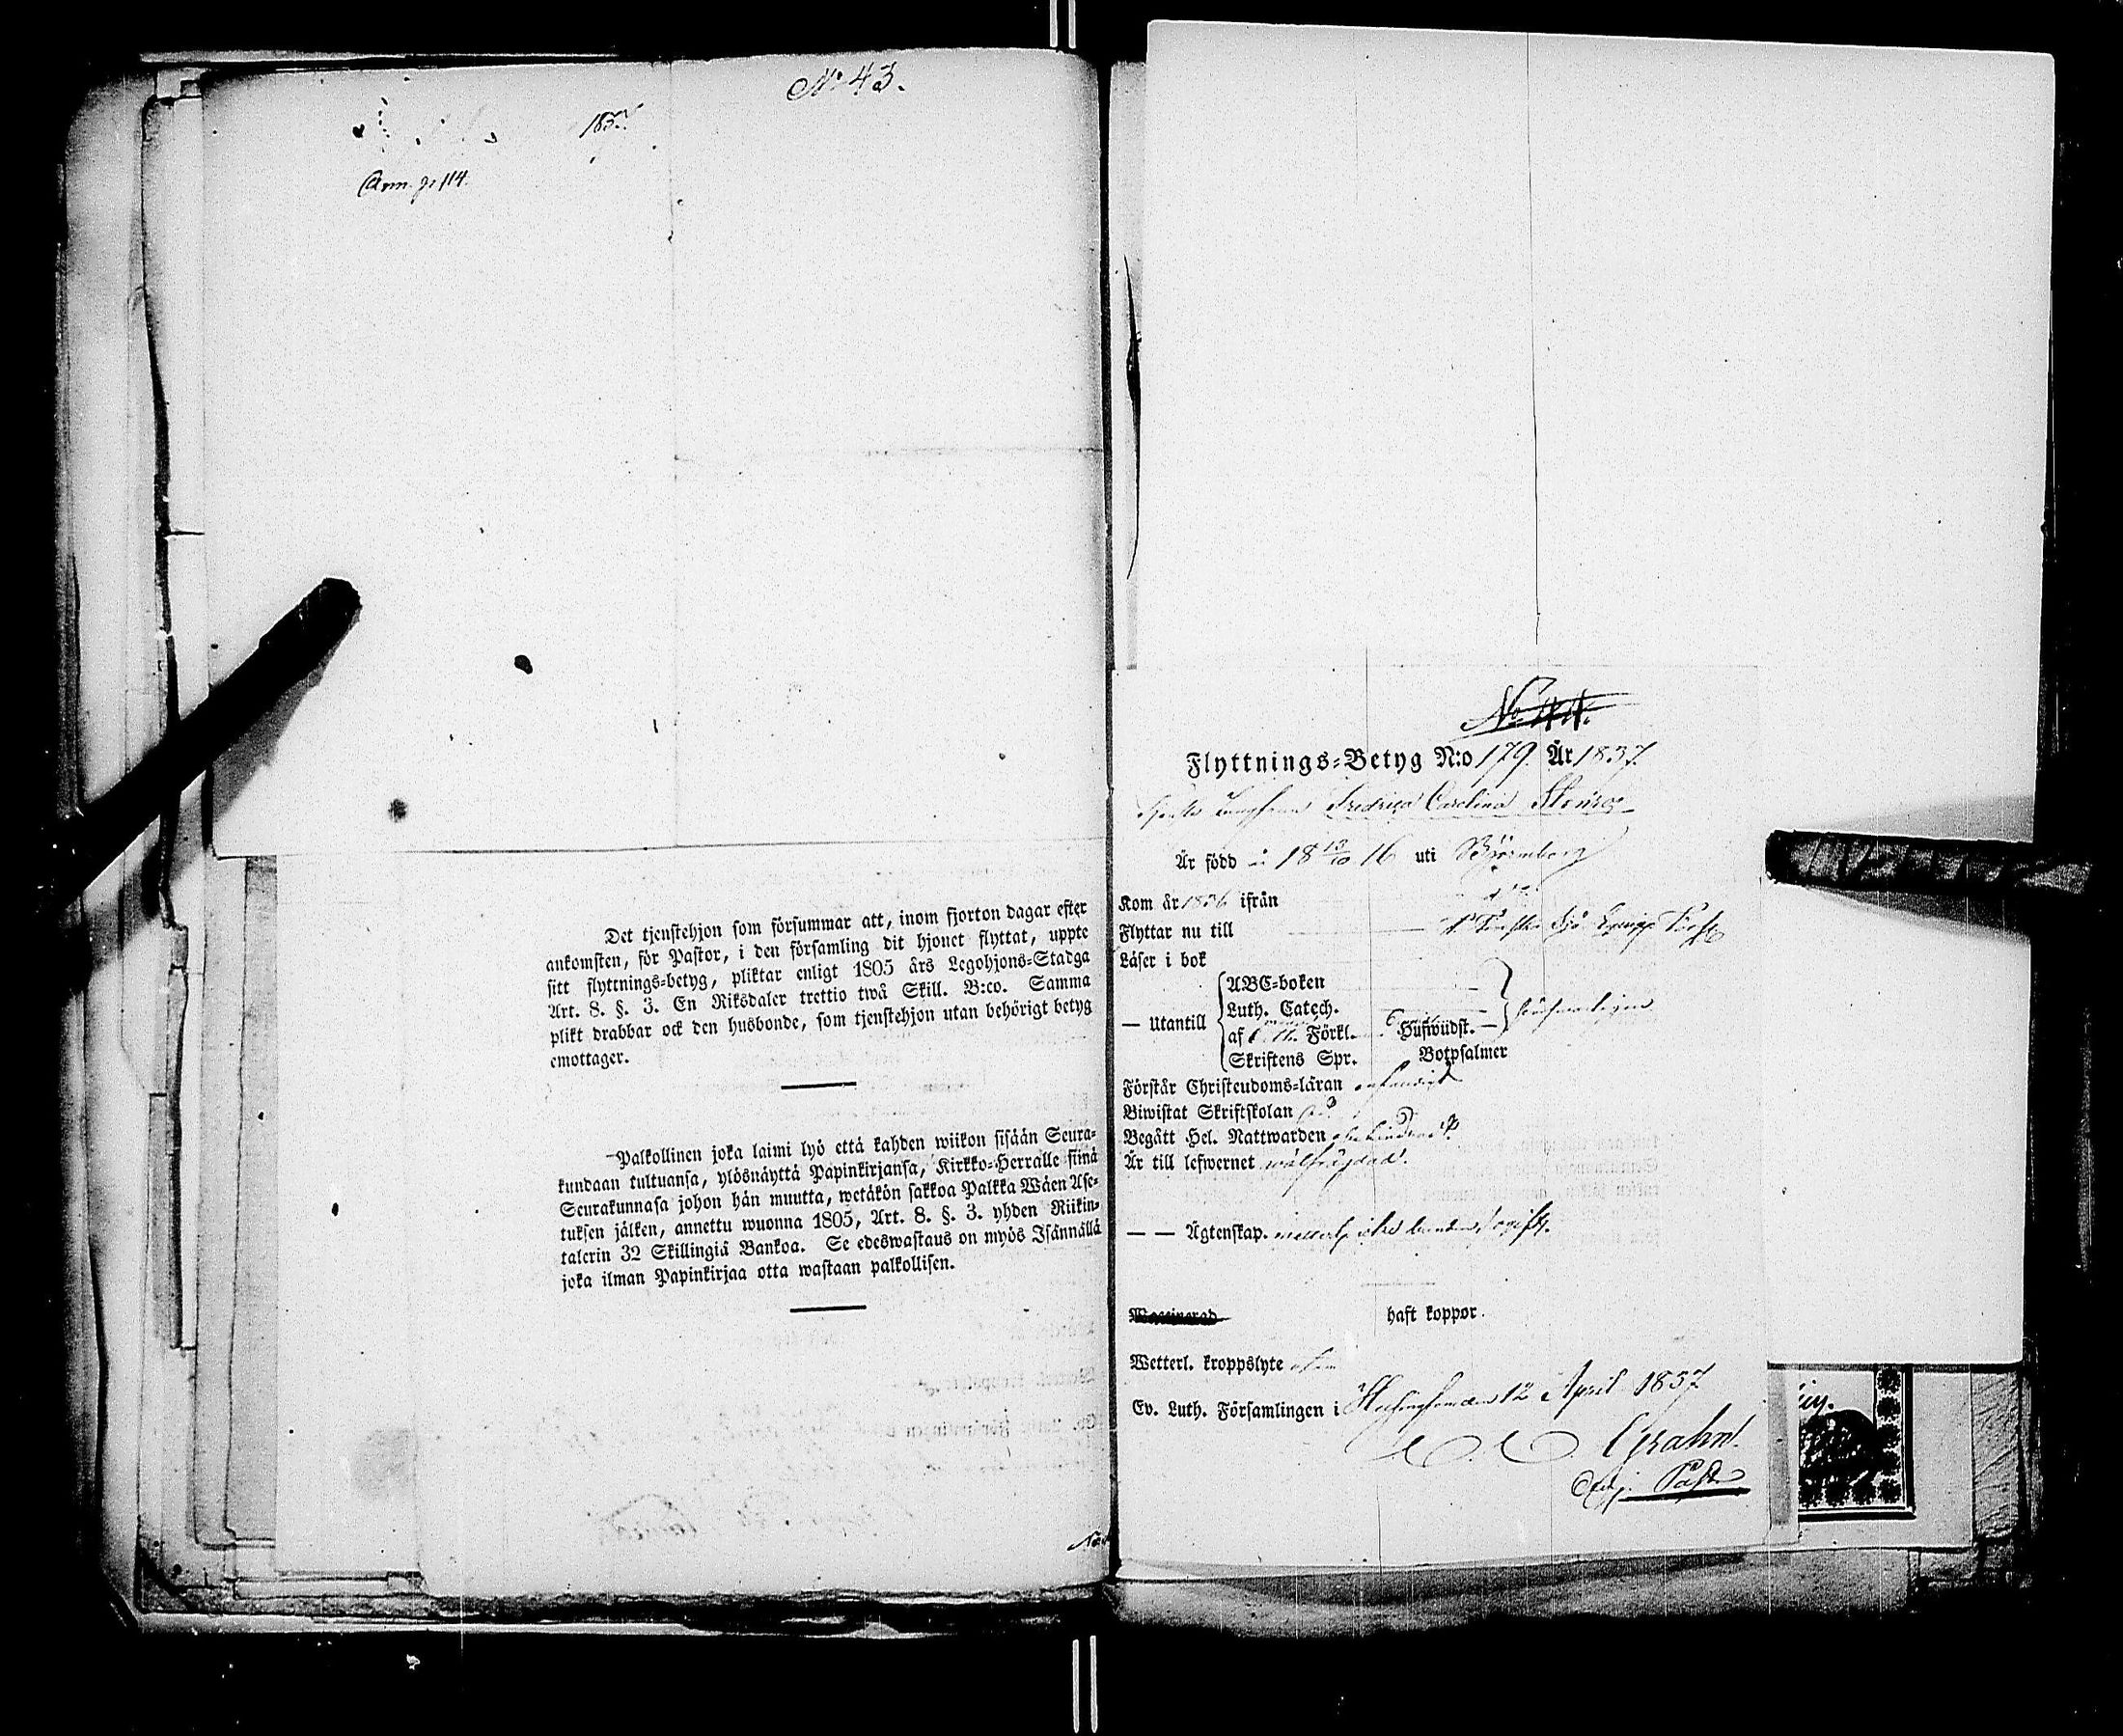 No 43.
1837
Det tjenstehjon som försummar att, inom fjorton dagar efter
ankomsten, för Pastor, i den församling dit hjonet flyttat, uppte
sitt flyttnings-betyg, pliktar enligt 1805 års Legohjons-Stadga
Art. 8. §. 3. En Riksdaler trettio twå Skill. B:co. Samma
plikt drabbar ock den husbonde, som tjenstehjon utan behörigt betyg
emottager.
Palkollinen joka laimi lyö että kahden wiikon sisään Seura-
kundaan tultuansa, ylösnäyttä Papinkirjansa, Kirkko-Herralle siinä
Seurakunnasa johon hän muutta, wetäkön sakkoa Palkka Wäen Ase-
tuksen jälken, annettu wuonna 1805, Art. 8. §. 3. yhden Riikin-
talerin 32 Skillingiä Bankoa. Se edeswastaus on myös Isännällä
joka ilman Papinkirjaa otta wastaan palkollisen.
No
Flyttnings-Betyg N:o 179. År 1837.
Fredrica Carolina
Är född 18 13/10 16 uti Björneborg
Kom år 1836 ifrån
Flyttar nu till
Läser i bok
ABC-boken
Luth. Catech.
— Utantill
af Förkl. Huswüdst. —
Skriftens Spr. Botpsalmer
Förstår Christendoms-läran
Biwistat Skriftskolan
Begått Hel. Nattwarden obehindrad
Är till lefwernet wälfrägdad.
— — Ägtenskap.
Waccinerad haft koppor.
Wetterl. kroppslyte
Ev. Luth. Församlingen i Helsingfors den 12 April 1837
Grahn.
Adj. Past.